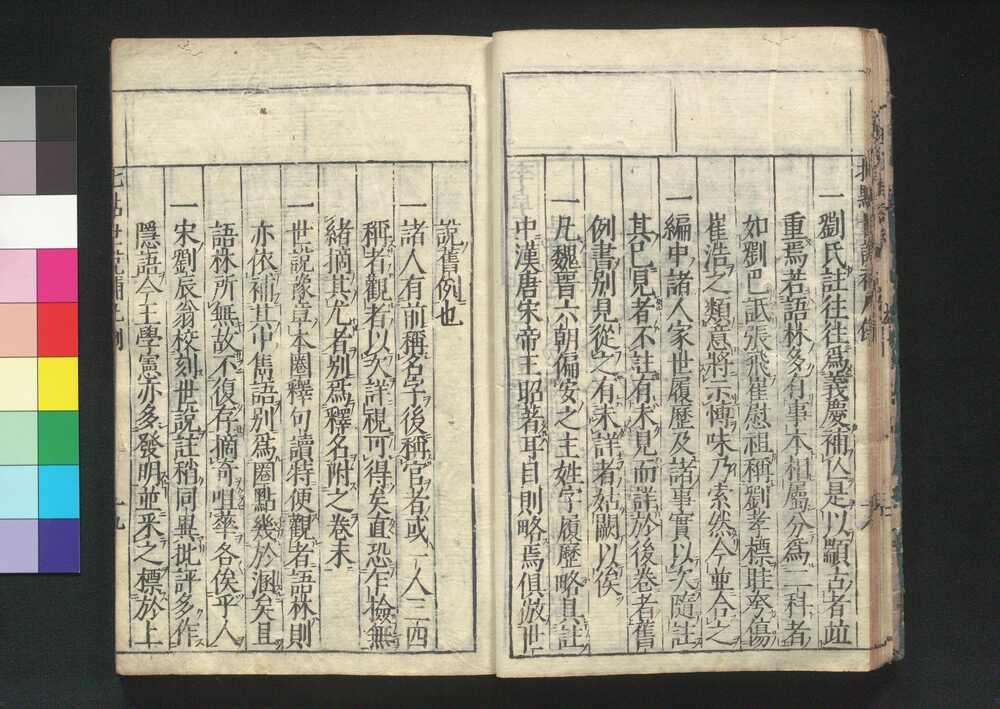 一劉氏註往往爲義慶補亾是以顓占者竝
重焉若語林多有事本相屬分爲二科者
如劉巴詆張飛崔慰祖稱劉孝標
崔浩之類意將示愽味乃索然今重合之
一編中諸人家世履歷及諸事實以次隨註
其已見者不註有未見而詳於後卷者舊
例書別見從之有未詳者姑闕以俟
一凡魏晋六朝偏安之主姓字履歷略具註
中漢唐宋帝王昭著耳目則略焉俱倣世
說舊例也
一諸人有前稱名字後稱官者或一人三四
稱者觀者以次詳視可得矣直恐乍撿無
緒摘其尤者別爲釋名附之卷末
一世說豫章本圈釋句讀特便觀者語林則
亦依補其中雋語別爲圈點幾於溷矣且
語林所無故不復存摘奇咀華各俟乎人
一宋劉辰翁校刻世說註稍同異批評多作
隱語今王學憲亦多發明並采之標於上